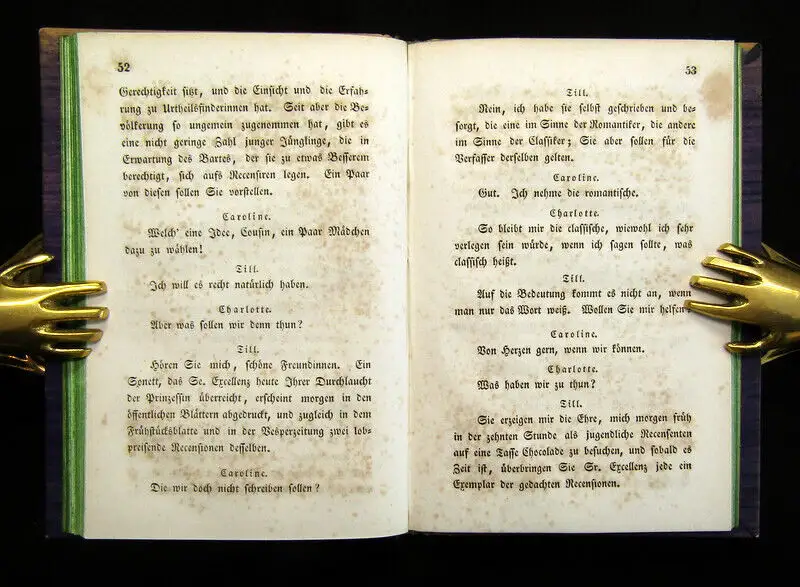 52
Gerechtigkeit sitzt, und die Einsicht und die Erfah-
rung zu Urtheilsfinderinnen hat. Seit aber die Be-
völkerung so ungemein zugenommen hat, gibt es
eine nicht geringe Zahl junger Jünglinge, die in
Erwartung des Bartes, der sie zu etwas Besserem
berechtigt, sich aufs Recensiren legen. Ein Paar
von diesen sollen Sie vorstellen.
Caroline.
Welch' eine Idee, Cousin, ein Paar Mädchen
dazu zu wählen!
Till.
Ich will es recht natürlich haben.
Charlotte.
Aber was sollen wir denn thun?
Till.
Hören Sie mich, schöne Freundinnen. Ein
Sonett, das Se. Excellenz heute Ihrer Durchlaucht
der Prinzessin überreicht, erscheint morgen in den
öffentlichen Blättern abgedruckt, und zugleich in dem
Frühstücksblatte und in der Vesperzeitung zwei lob-
preisende Recensionen desselben.
Caroline.
Die wir doch nicht schreiben sollen?
53
Till.
Nein, ich habe sie selbst geschrieben und be-
sorgt, die eine im Sinne der Romantiker, die andere
im Sinne der Classiker; Sie aber sollen für die
Verfasser derselben gelten.
Caroline.
Gut. Ich nehme die romantische.
Charlotte.
So bleibt mir die classische, wiewohl ich sehr
verlegen sein würde, wenn ich sagen sollte, was
classisch heißt.
Till.
Auf die Bedeutung kommt es nicht an, wenn
man nur das Wort weiß. Wollen Sie mir helfen?
Caroline.
Von Herzen gern, wenn wir können.
Charlotte.
Was haben wir zu thun?
Till.
Sie erzeigen mir die Ehre, mich morgen früh
in der zehnten Stunde als jugendliche Recensenten
auf eine Tasse Chocolade zu besuchen, und sobald es
Zeit ist, überbringen Sie Sr. Excellenz jede ein
Exemplar der gedachten Recensionen.